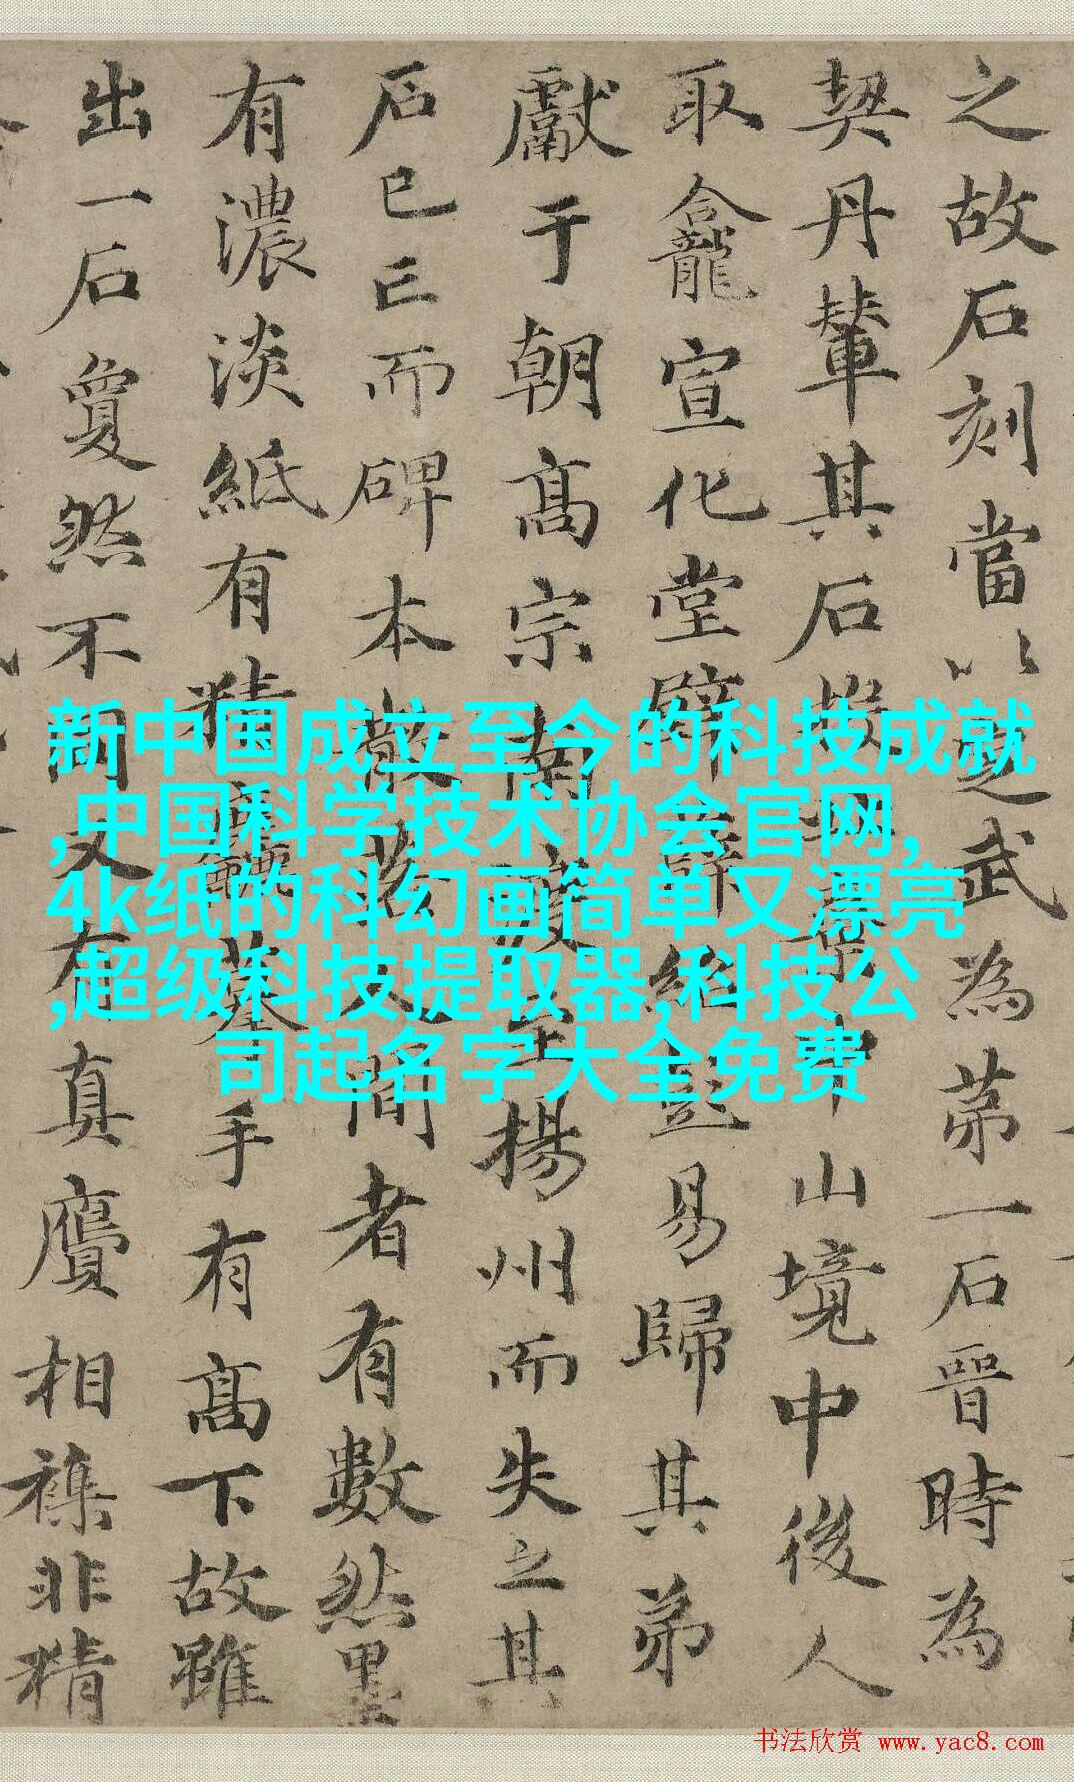 之故石刻當以定武為苐一石晉時為
契丹輦其石投
山境中後人
取龕宣化堂壁
易歸其弟
獻于朝高宗南渡
揚州而失之其
石已亡而碑本散落人間者有數然墨
有濃淡紙有精麤摹手有高下故雖
出一石敻然不同又有真贗相襍非精
新中国成立至今的科技成就
,中国科学技术协会官网,
4k纸的科幻画简单又漂亮
,超级科技提取器,科技公
司起名字大全免费
书法欣赏 www.yac8.com